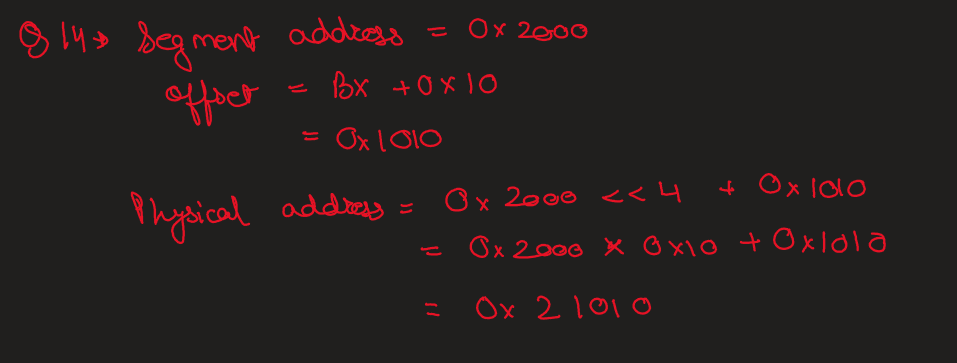 Q 14→ Segment address = 0x2000
offset = BX + 0x10
= 0x1010
Physical address = 0x2000 << 4 + 0x1010
= 0x2000 * 0x10 + 0x1010
= 0x21010